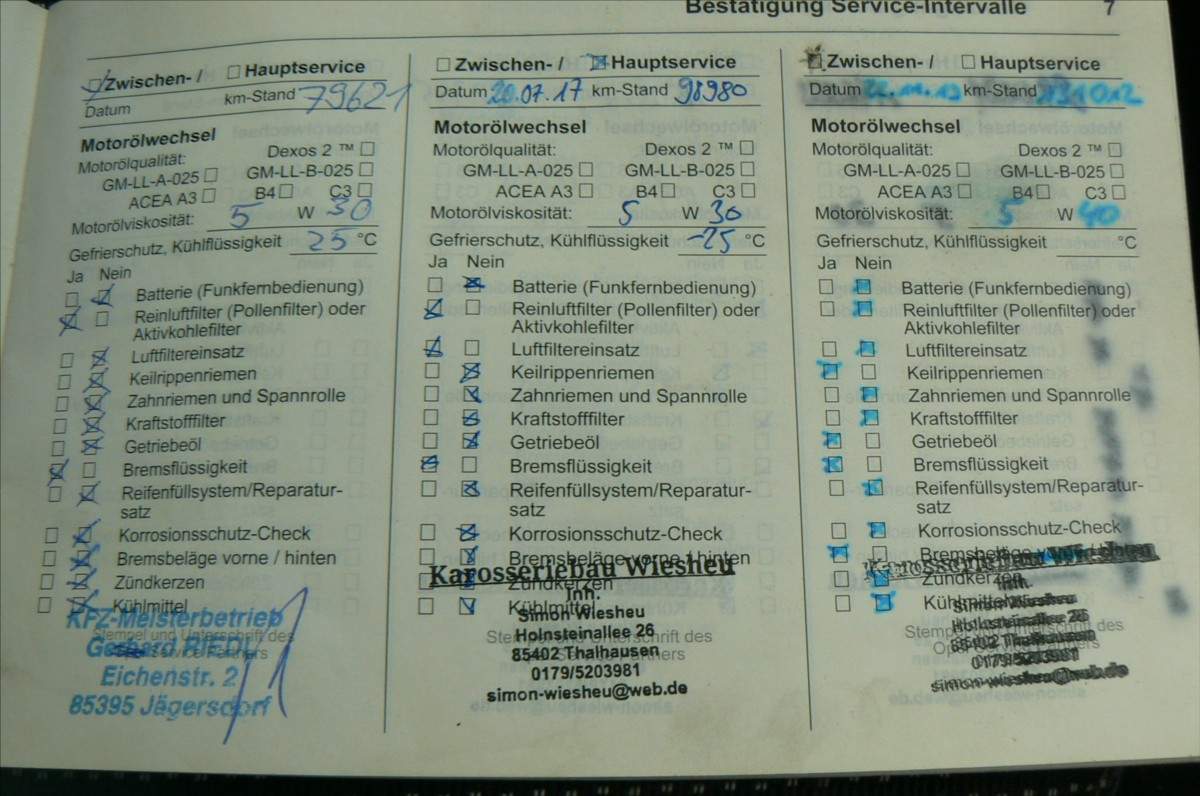 Bestätigung Service-Intervalle 7
Zwischen- / Hauptservice
Datum km-Stand 79621
Motorölwechsel
Motorölqualität: Dexos 2 ™
GM-LL-A-025 GM-LL-B-025
ACEA A3 B4 C3
Motorölviskosität: 5 W 30
Gefrierschutz, Kühlflüssigkeit 25 °C
Ja Nein
Batterie (Funkfernbedienung)
Reinluftfilter (Pollenfilter) oder
Aktivkohlefilter
Luftfiltereinsatz
Keilrippenriemen
Zahnriemen und Spannrolle
Kraftstofffilter
Getriebeöl
Bremsflüssigkeit
Reifenfüllsystem/Reparatur-
satz
Korrosionsschutz-Check
Bremsbeläge vorne / hinten
Zündkerzen
Kühlmittel
KFZ-Meisterbetrieb
Stempel und Unterschrift des
Service Partners
Eichenstr. 2
85395 Jägersdorf
Zwischen- / Hauptservice
Datum 20.07.17 km-Stand 98980
Motorölwechsel
Motorölqualität: Dexos 2 ™
GM-LL-A-025 GM-LL-B-025
ACEA A3 B4 C3
Motorölviskosität: 5 W 30
Gefrierschutz, Kühlflüssigkeit -25 °C
Ja Nein
Batterie (Funkfernbedienung)
Reinluftfilter (Pollenfilter) oder
Aktivkohlefilter
Luftfiltereinsatz
Keilrippenriemen
Zahnriemen und Spannrolle
Kraftstofffilter
Getriebeöl
Bremsflüssigkeit
Reifenfüllsystem/Reparatur-
satz
Korrosionsschutz-Check
Bremsbeläge vorne / hinten
Karosseriebau Wiesheu
Zündkerzen
Inh.
Kühlmittel
Simon Wiesheu
Holnsteinallee 26
Stempel und Unterschrift des
85402 Thalhausen
Partners
0179/5203981
simon-wiesheu@web.de
Zwischen- / Hauptservice
Datum km-Stand
Motorölwechsel
Motorölqualität: Dexos 2 ™
GM-LL-A-025 GM-LL-B-025
ACEA A3 B4 C3
Motorölviskosität: 5 W 40
Gefrierschutz, Kühlflüssigkeit °C
Ja Nein
Batterie (Funkfernbedienung)
Reinluftfilter (Pollenfilter) oder
Aktivkohlefilter
Luftfiltereinsatz
Keilrippenriemen
Zahnriemen und Spannrolle
Kraftstofffilter
Getriebeöl
Bremsflüssigkeit
Reifenfüllsystem/Reparatur-
satz
Korrosionsschutz-Check
Bremsbeläge vorne / hinten
Karosseriebau Wiesheu
Zündkerzen
Inh.
Kühlmittel
Simon Wiesheu
Holnsteinallee 26
Stempel und Unterschrift des
85402 Thalhausen
Opel Service Partners
0179/5203981
simon-wiesheu@web.de